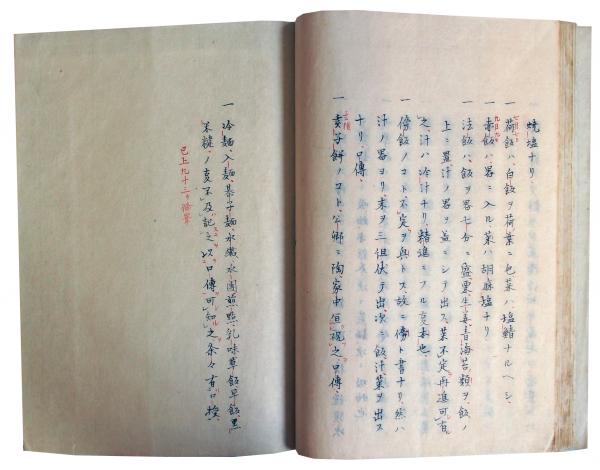 焼塩ナリ
一 荷飯ハ、白飯ヲ荷葉ニ包菜ハ、塩鯖ナルヘシ、
七月七日
一 赤飯ハ、器ニ入ル、菜ハ胡麻塩ナリ
九月九日
一 法飯ハ、飯ヲ器七分ニ盛、栗生姜青海苔類ヲ、飯ノ
上ニ置、汁ノ器ヲ蓋ニシテ出ス、菜不定、再進可有
之、汁ハ冷汁ナリ、精進ニフル変本也、
一 傍飯ノコト不定ヲ與トス、故ニ傍ト書ナリ、然ハ
汁ノ器ヨリ、末ヲ三俣伏テ出、次ニ飯汁菜ヲ出ス
ナリ、口傳
一 亥子餅ノコト、公卿ニ陶家中
一 冷麺、入麺、碁子麺、水織、水團、煎點、乳味、草飯、早飯、黒
不及記之、以口傳可知之、条々有口授、
已上九十三ケ條畢